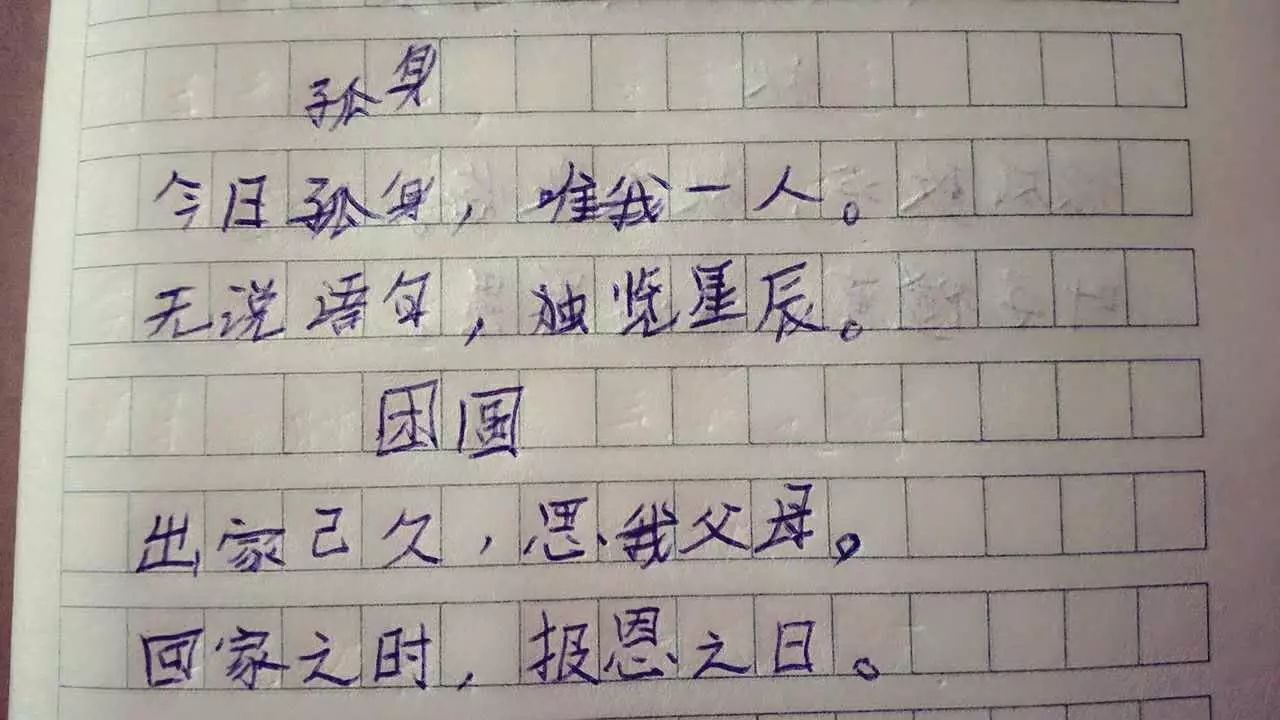 孤身
今日孤身，唯我一人。
无说语句，独览星辰。
团圆
出家已久，思我父母。
回家之时，报恩之日。